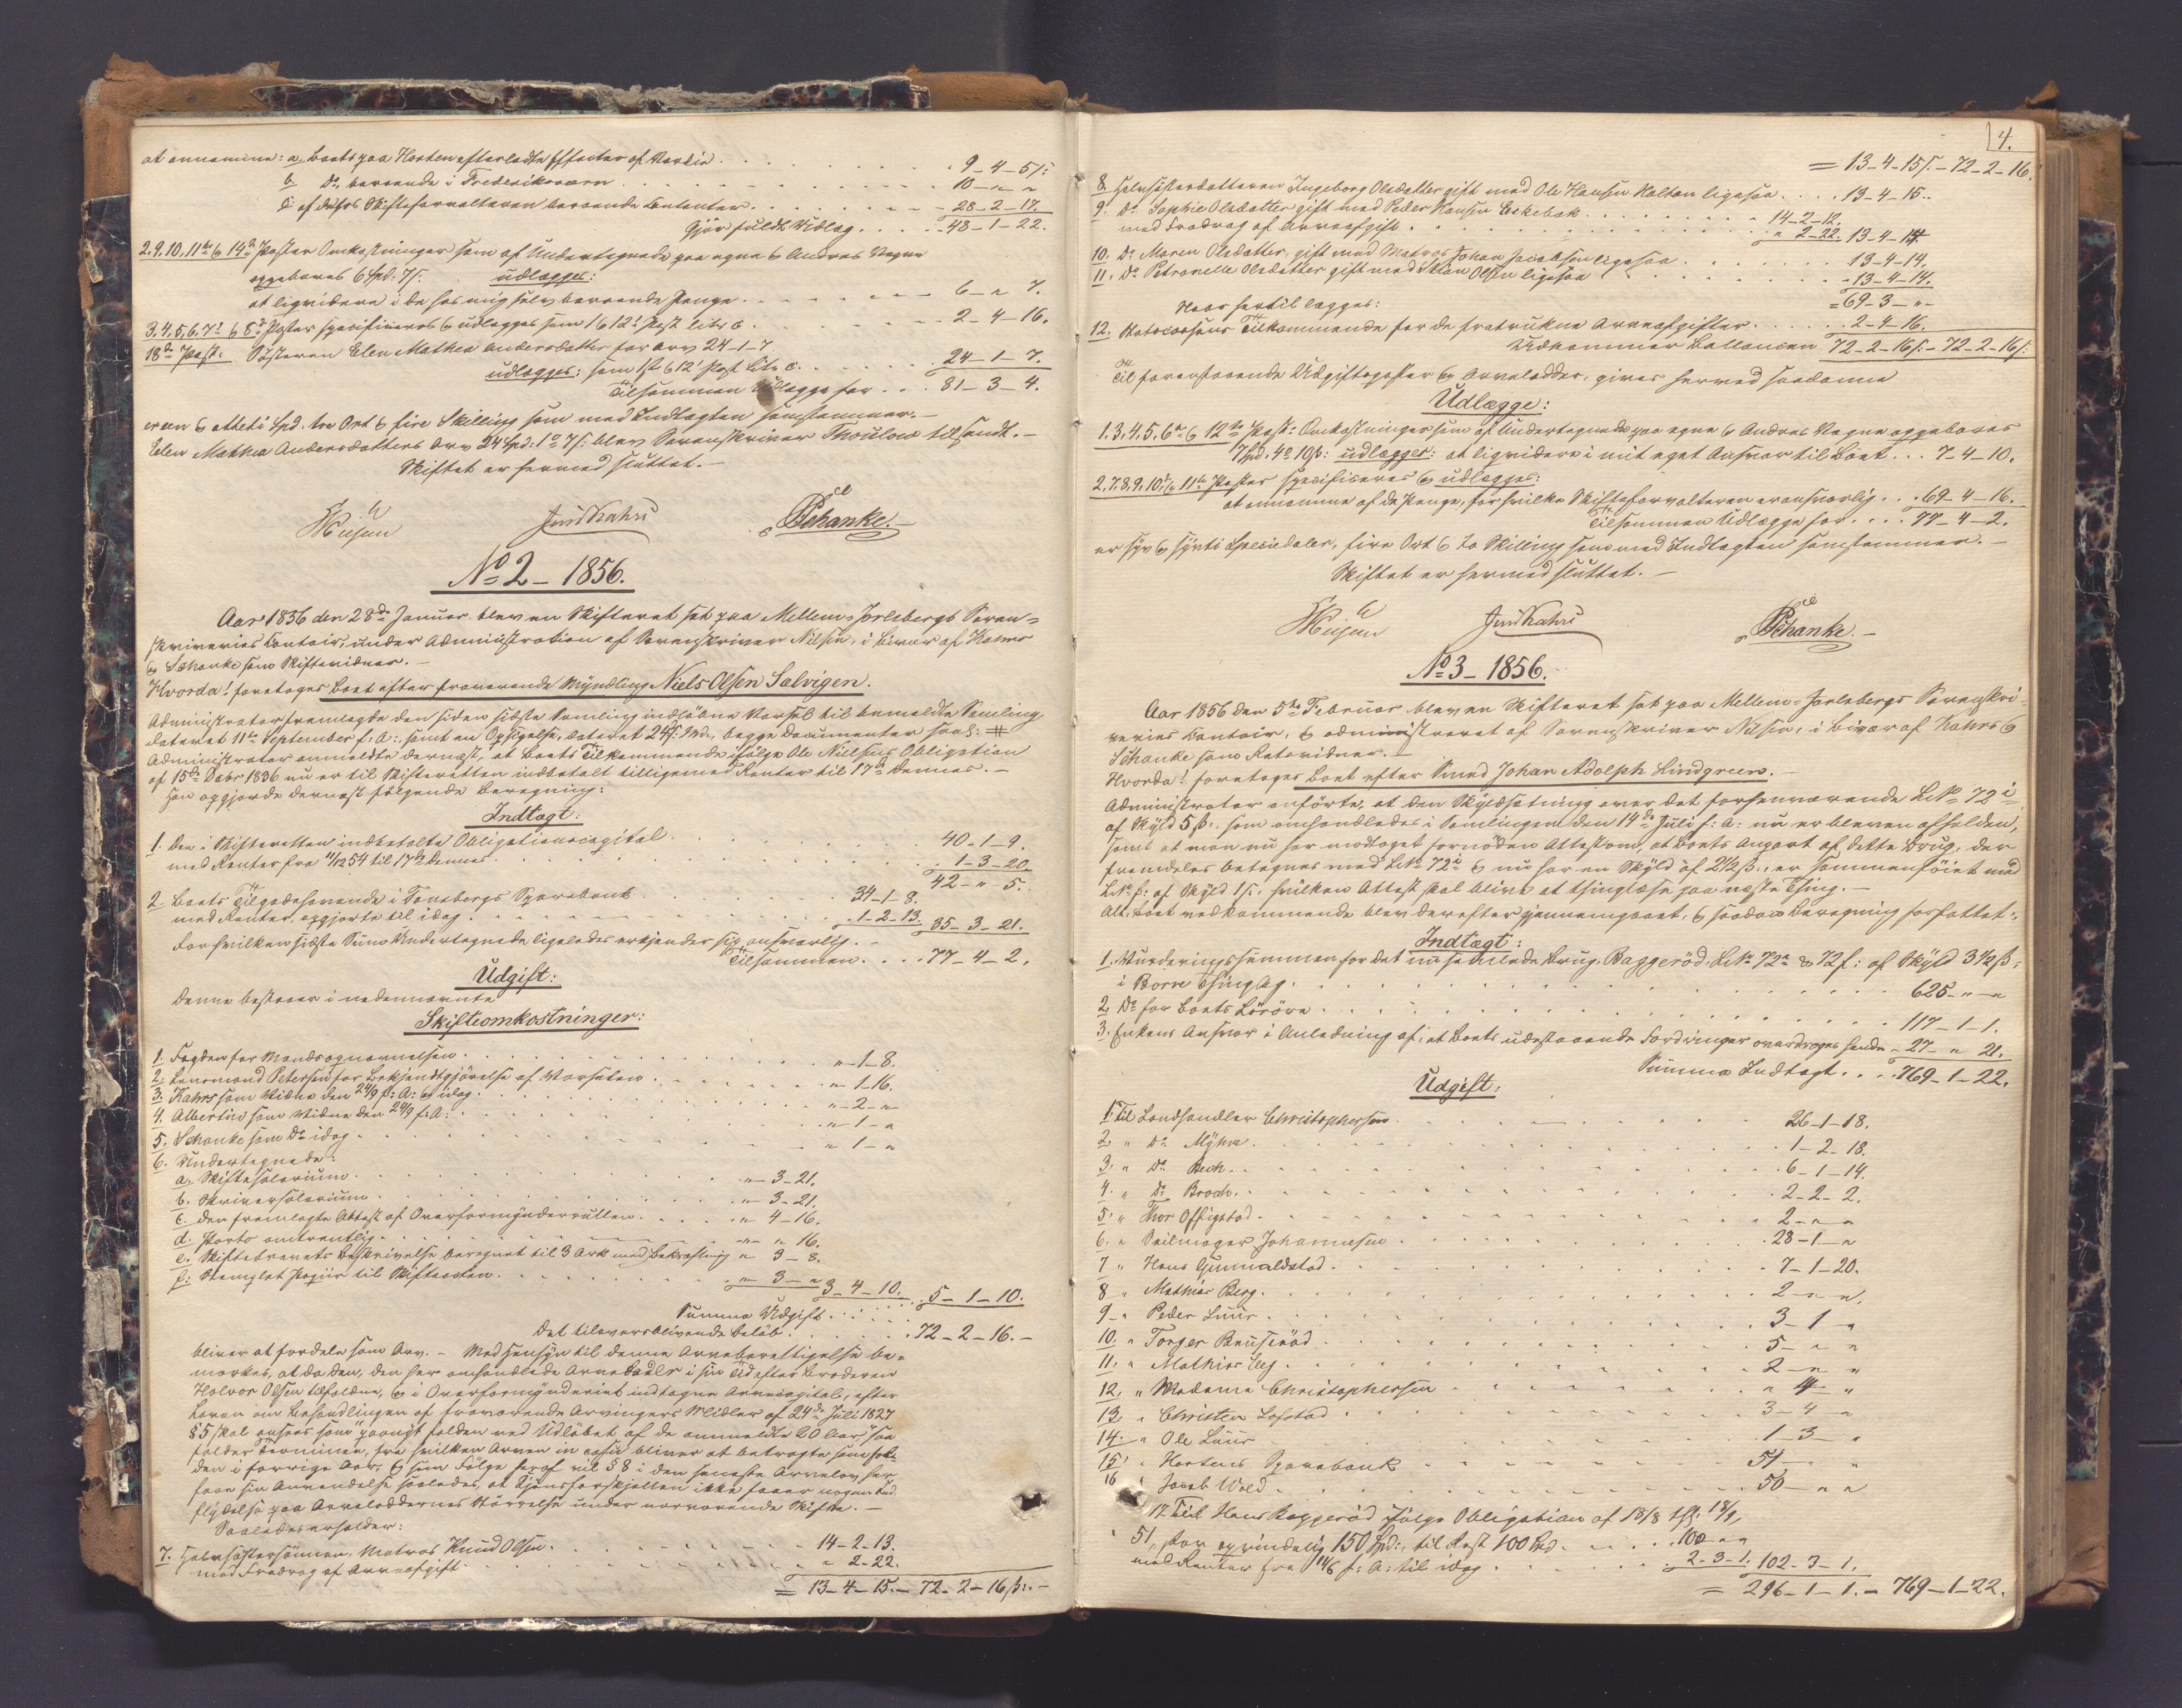 at annamme: a, Boets paa Horten efterladte Effecter af Værdie . . . 9-4-5 ß:
b Do. beroende i Frederiksværn . . . 10-"-"
c af de hos Skifteforvalteren beroende Contanter . . . 28-2-17.
Gjør fuldt Udlæg . . . 48-1-22.
2.9.10.11te & 14de Poster Omkostninger som af Undertegnede paa egne & Andres Vegne
oppebæres 6 Spd. 7 ß. udlægges:
at liqvidere i de hos mig selv beroende Penge . . . 6-"-7.
3.4.5.6.7de & 8de Poster specificeres & udlægges som 1 & 12te Post litr c . . . 2-4-16.
18de Post: Søsteren Elen Mathea Andersdatter for Arv 24-1-7
udlægges: som 1ste & 12te Post Litr c. . . . 24-1-7.
Tilsammen Udlægge for . . . 81-3-4.
er een & otteti Spd. tre Ort & fire Skilling som med Indtægten samstemmer.-
Elen Mathea Andersdatters Arv 24 Spd. 1 o 7 ß: blev Sorenskriver Thoulow tilsendt.-
Skiftet er hermed sluttet.-
Schanke.-
No 2 - 1856.
Aar 1856 den 28de Januar blev en Skifteret sat paa Mellem-Jarlsbergs Soren=
skriveries Contoir, under Administration af Sorenskriver Nilsen, i Bivær af Kahrs
& Schanke som Skiftevidner.-
Hvorda! foretoges Boet efter fraværende Myndling Niels Olsen Salvigen.
Administrator fremlagde den siden sidste Samling indløbne Varsel til anmeldte Samling
dateret 11te September f: A:, samt en Opsigelse, dateret 24 s: Md., begge Documenter saal: #
Administrator anmeldte dernæst, at Boets Tilkommende ifølge Ole Nielsens Obligation
af 15de Debr 1836 nu er til Skifteretten indbetalt tilligemed Renter til 17de dennes.-
Han opgjorde dernæst følgende Beregning:
Indtægt:
1. Den i Skifteretten indbetalte Obligationscapital . . . 40-1-9.
med Renter fra 11/12 54 til 17de dennes . . . 1-3-20.
42-"-5.
2. Boets Tilgodehavende i Tønsbergs Sparebank . . . 34-1-8.
med Renter, opgjorte til idag . . . 1-2-13. 35-3-21.
For hvilken sidste Sum Undertegnede ligeledes erkjender sig ansvarlig.-
Tilsammen . . . 77-4-2.
Udgift:
Denne bestaaer i nedennævnte
Skifteomkostninger:
1. Fogden for Mandsopnævnelsen . . . "-1-8.
2. Lensmand Petersen for Bekjendtgjørelse af Varselen . . . "-1-16.
3. Kahrs som Vidne den 24/9 f: A: & idag . . . "-2-"
4. Albertin som Vidne den 24/9 f: A: . . . "-1-"
5. Schanke som Do idag . . . "-1-"
6. Undertegnede:
a. Skiftesalarium . . . "-3-21.
b. Skriversalarium . . . "-3-21.
c. den fremlagte Attest af Overformynderrullen . . . "-4-16.
d. Porto omtrentlig . . . "-"-16.
e. Skiftebrevets Beskrivelse beregnet til 3 Ark med Bekræftning "-3-8.
f: Stemplet Papiir til Skifteacten . . . "-3-" 3-4-10. 5-1-10.
Summa Udgift . . .
Det tiloversblivende Beløb . . . 72-2-16.-
bliver at fordele som Arv.- Med Hensyn til denne Arveberettigelse be-
mærkes, at da den, den her omhandlede Arvelader i sin Tid efter Broderen
Halvor Olsen tilfaldne, & i Overformynderiet indtagne Arvecapital, efter
Loven om Behandlingen af fraværende Arvingers Midler af 24de Juli 1827
§ 5 skal ansees som paany falden ved Udløbet af de anmeldte 20 Aar saa
falder Terminen, fra hvilken Arven in casu bliver at betragte som fal-
den i forrige Aar, & som Følge heraf vil § 8 i den seneste Arvelov her
faae sin Anvendelse saaledes, at Kjønsforskjellen ikke faaer nogen Ind
flydelse paa Arveloddernes Størrelse under nærværende Skifte.-
Saaledes erholder:
7. Halvsøstersønnen, Matros Knud Olsen . . . 14-2-13.
med Fradrag af Arveafgift . . . "-2-22.
= 13-4-15.-72-2-16 ß:.-
4.
= 13-4-15 ß.-72-2-16.
8. Halvsøsterdatteren Ingeborg Olsdatter gift med Ole Hansen Kalken ligesaa . . . 13-4-15.
9. Do Sophie Olsdatter gift med Peder Hansen Eskebæk . . . 14-2-12.
med Fradrag af Arveafgift . . . "-2-22. 13-4-14.
10. Do. Maren Olsdatter, gift med Matros Johan Jacobsen ligesaa . . . 13-4-14.
11. Do Petronelle Olsdatter gift med Olsen ligesaa . . . 13-4-14.
= 69-3-"-
Hvor hertil lægges:
12. Statscassens Tilkommende for de fratrukne Arveafgifter . . . 2-4-16.
Udkommer Ballancen 72-2-16 ß:-72-2-16 ß:
Til foranstaaende Udgiftsposter & Arvelodder, gives herved saadanne
Udlægge:
1.3.4.5.6te & 12te Post: Omkostninger som af Undertegnede paa egne & Andres Vegne oppebæres
7 Spd. 4 o 10 ß: udlægges: at liqvidere i mit eget Ansvar til Boet . . . 7-4-10.
2.7.8.9.10de & 11te Poster specificeres & udlægges:
at annamme af de Penge, for hvilke Skifteforvalteren er ansvarlig . . . 69-4-16.
Tilsammen Udlægge for . . . 77-4-2.
er syv & sytti Speciedaler, fire Ort & to Skilling som med Indtægten samstemmer.-
Skiftet er hermed sluttet.-
Schanke.-
No 3 - 1856.
Aar 1856 den 5te Februar blev en Skifteret sat paa Mellem-Jarlsbergs Sorenskri-
veries Contoir, & administreret af Sorenskriver Nilsen, i Bivær af Kahrs &
Schanke som Retsvidner.-
Hvorda! foretoges Boet efter Smed Johan Adolph Lindgreen.-
Administrator anførte, at den Skyldsætning over det forhenværende LNo 72 i
af Skyld 5 ß., som omhandledes i Samlingen den 14de Juli f: A: nu er bleven afholden,
samt at man nu har modtaget fornøden Attest om, at Boets Anpart af dette Brug, der
fremdeles betegnes med LNo 72 i & nu har en Skyld af 2 1/2 ß., er sammenføiet med
LNo f: af Skyld 1 ß, hvilken Attest skal blive at thinglæse paa næste Thing.-
Alt Boet vedkommende blev derefter gjennemgaaet, & saadan Beregning forfattet:
Indtægt:
1. Vurderingssummen for det nu samlede Brug, Baggerød LNo 72 i & 72 f: af Skyld 3 1/2 ß:
i Borre Thinglag . . . 625-"-"
2. Do for Boets Løsøre . . . 117-1-1.
3. Enkens Ansvar i Anledning af, at Boets udestaaende Fordringer overdrages hende - 27-"-21.
Summa Indtægt . . . 769-1-22.
Udgift:
1. Til Landhandler Christophersen . . . 26-1-18.
2. " Do Myhre . . . 1-2-18.
3. " Do Bech . . . 6-1-14.
4. " Do Broch . . . 2-2-2.
5. " Thor Offigstad . . . 2-"-"
6. " Seilmager Johannesen . . . 28-1-"
7 " Hans Gunnaldstad . . . 7-1-20.
8 " Mathias Berg . . . 2-"-".
9 " Peder Luur . . . 3-1-"
10. " Torger Bruserød . . . 5-"-"
11. " Mathias Eeg . . . 2-"-"
12. " Madame Christophersen . . . "-4-"
13. " Christen Lofstad . . . 3-4-"
14. " Ole Luur . . . 1-3-"
15. " Hortens Sparebank . . . 54-"-"
16 " Jacob Wold . . . 50-"-"
17. Til Hans Baggerød ifølge Obligation af 18/8
51, stor oprindelig 150 Spd:, til Rest 100 Spd . . . 100-"-"
med Renter fra 11/6 f: A: til idag . . . 2-3-1. 102-3-1.
= 296-1-1.-769-1-22.